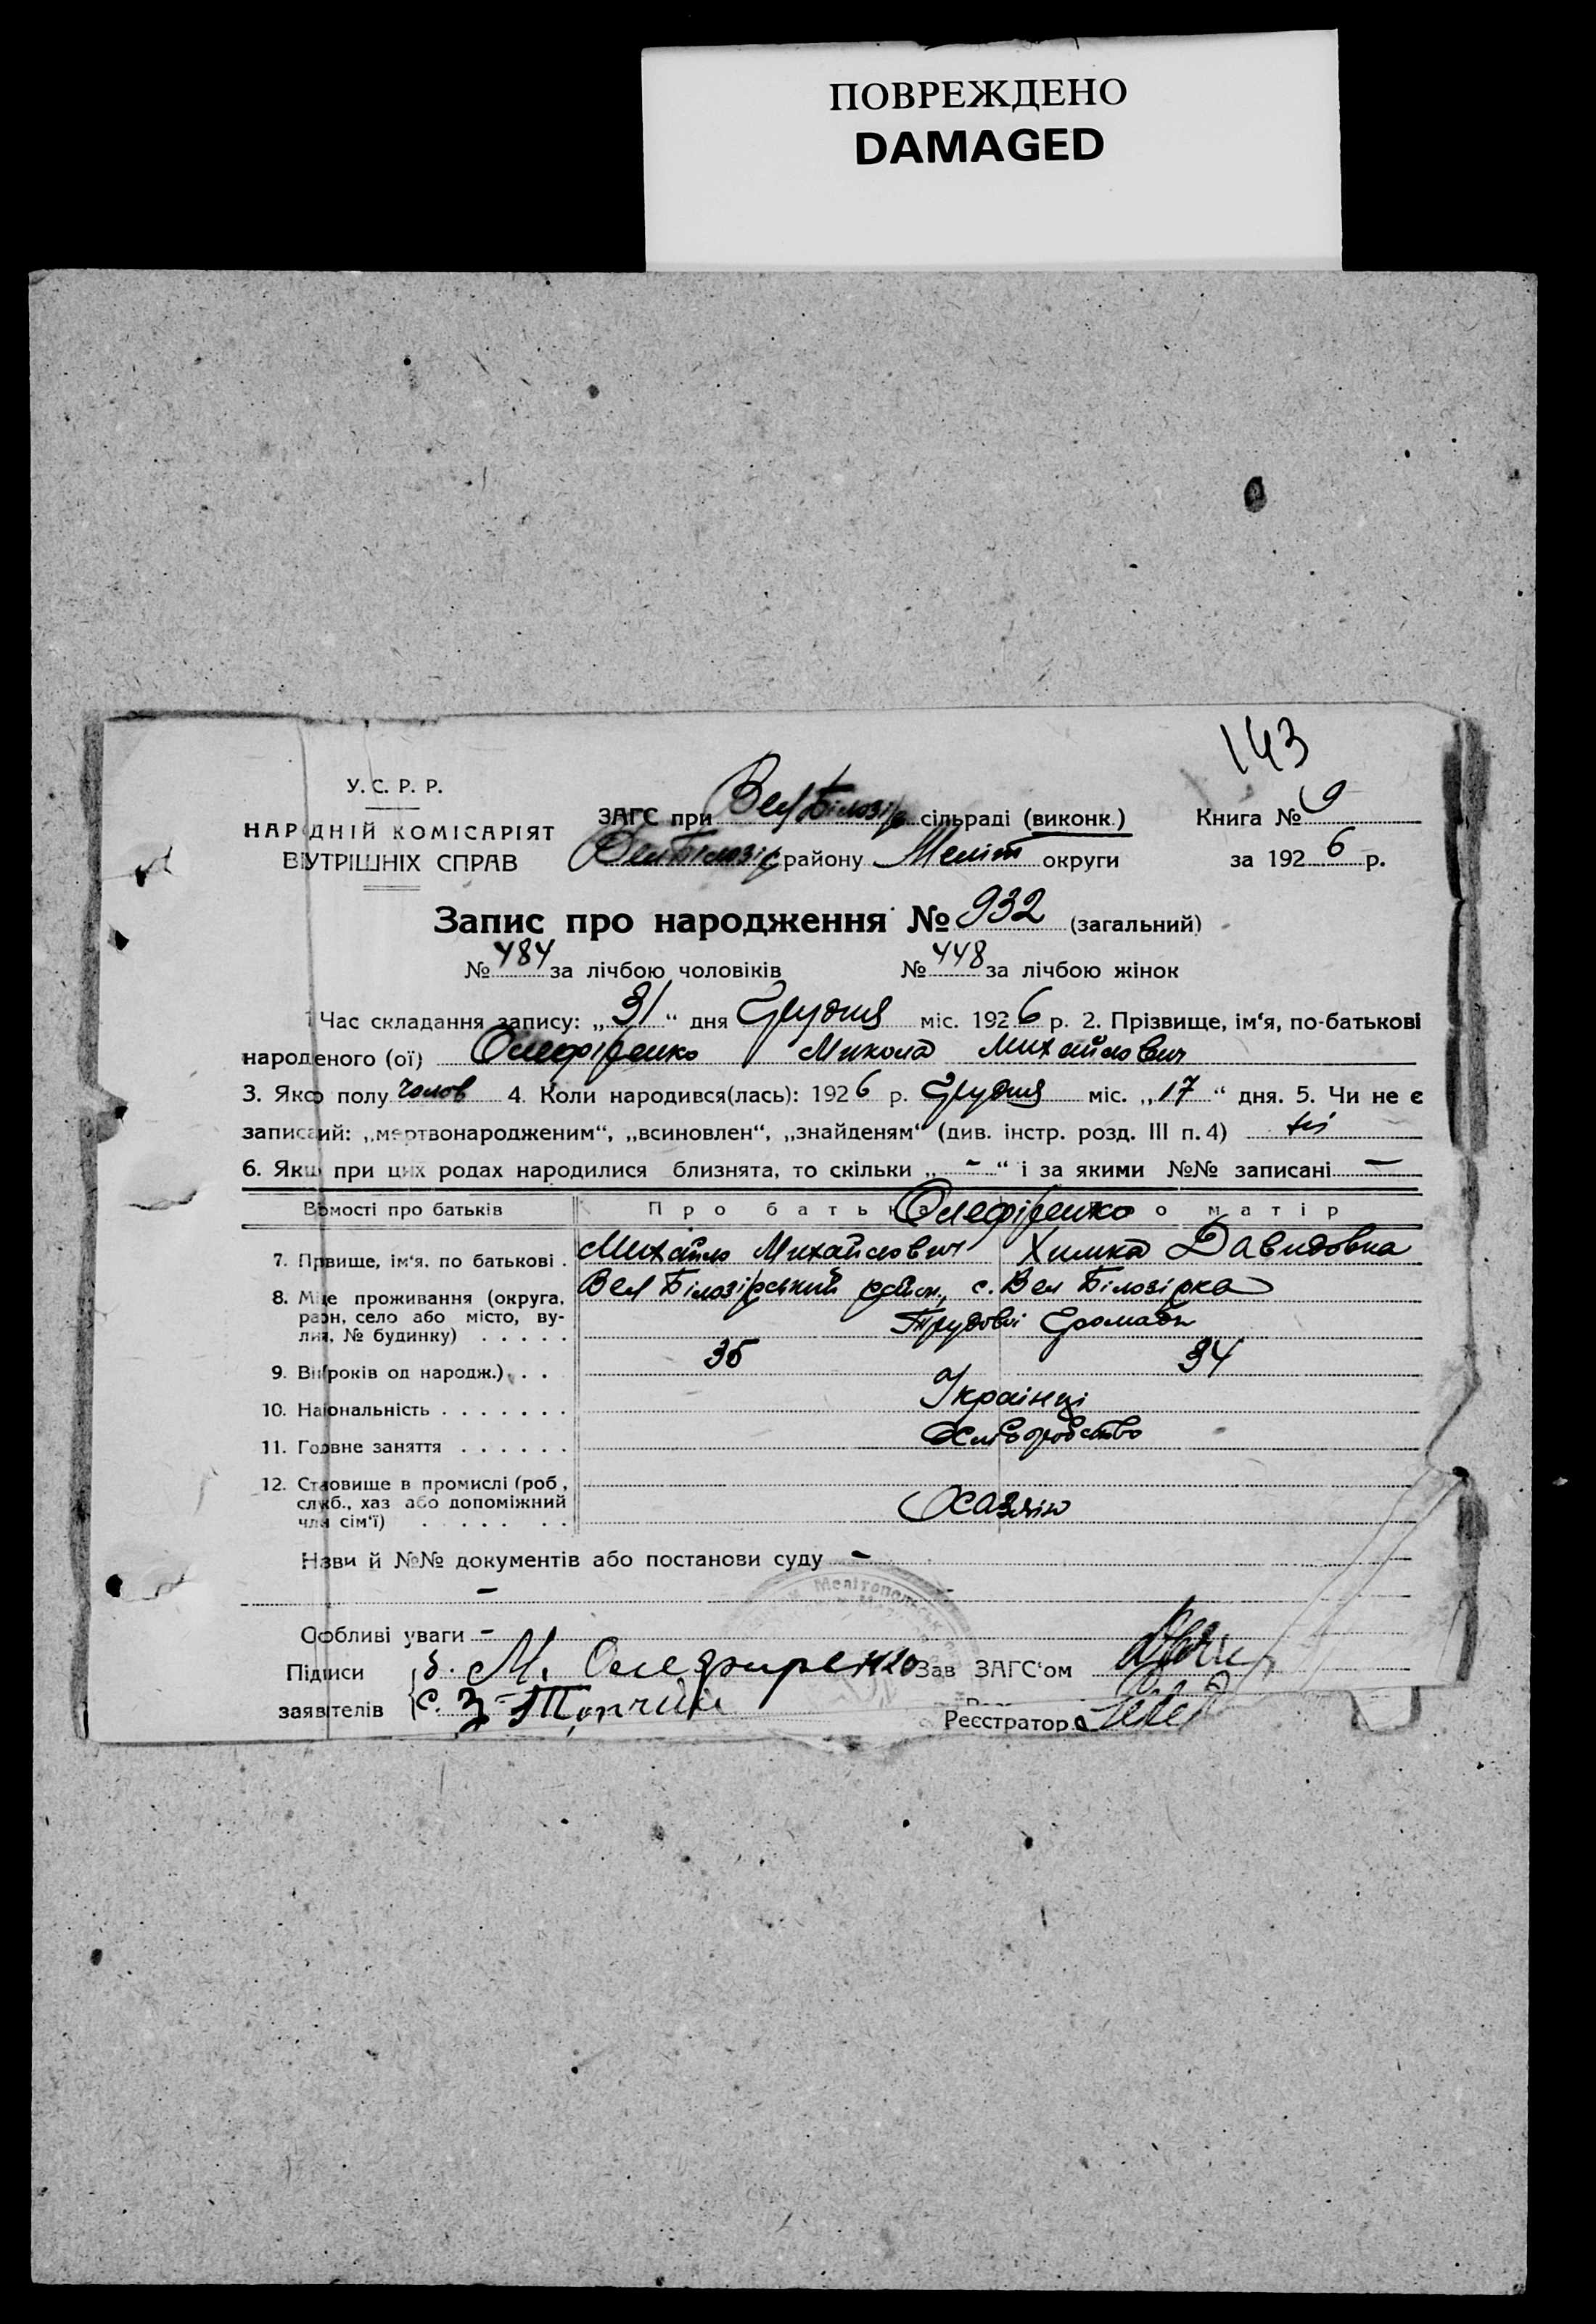 ПОВРЕЖДЕНО
DAMAGED
143
У.С.Р.Р.
НАР ДНІЙ КОМІСАРІЯТ
ВУТРІШНІХ СПРАВ
ЗАГС при Вел Білозір сільраді (виконк.)
Вел Білозір району Меліт округи
Книга № 9
за 1926 р.
Запис про народження № 932 (загальний)
№ 484 за лічбою чоловіків № 448 за лічбою жінок
1 Час складання запису: „31“ дня Грудня міс. 1926 р. 2. Прізвище, ім‘я, по-батькові
народеного (ої) Олефіренко Микола Михайлович
3. Яко полу чолов 4. Коли народився(лась): 1926 р. Грудня міс. „17“ дня. 5. Чи не є
записаий: „мертвонародженим“, „всиновлен“, „знайденям“ (див. інстр. розд. III п. 4) ні
6. Якщ при цих родах народилися близнята, то скільки „-“ і за якими №№ записані —
Вомості про батьків Про батька Олефіренко о матір
7. Првище, ім‘я. по батькові . Михайло Михайлович Химка Давидовна
8. Мце проживання (округа, Вел Білозірський район, с. Вел Білозірка
раон, село або місто, ву-
лия, № будинку) . . . . . Трудової Громади
9. Ви(років од народж.) . . 36 34
10. Наіональність . . . . . . . Українці
11. Говне заняття . . . . . . Хліборобство
12. Стаовище в промислі (роб,
слжб., хаз або допоміжний
члн сім‘ї) . . . . . . . Хазяїн
Нзви й №№ документів або постанови суду -
-
Мелітопольськ
Особливі уваги -
Підписи б. М. Олефиренко Зав ЗАГС‘ом
заявителів с. З
Реєстратор